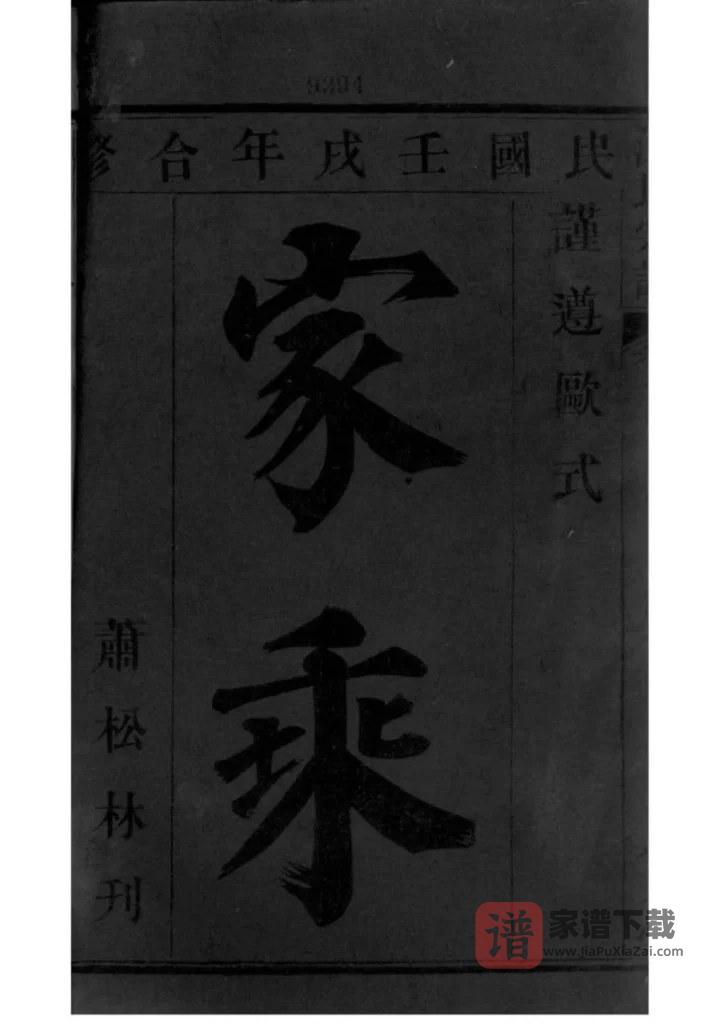 9394
民國壬戌年合修
謹遵歐式
家乘
蕭松林刊
谱
家谱下载
www.jiaPuXiaZai.com